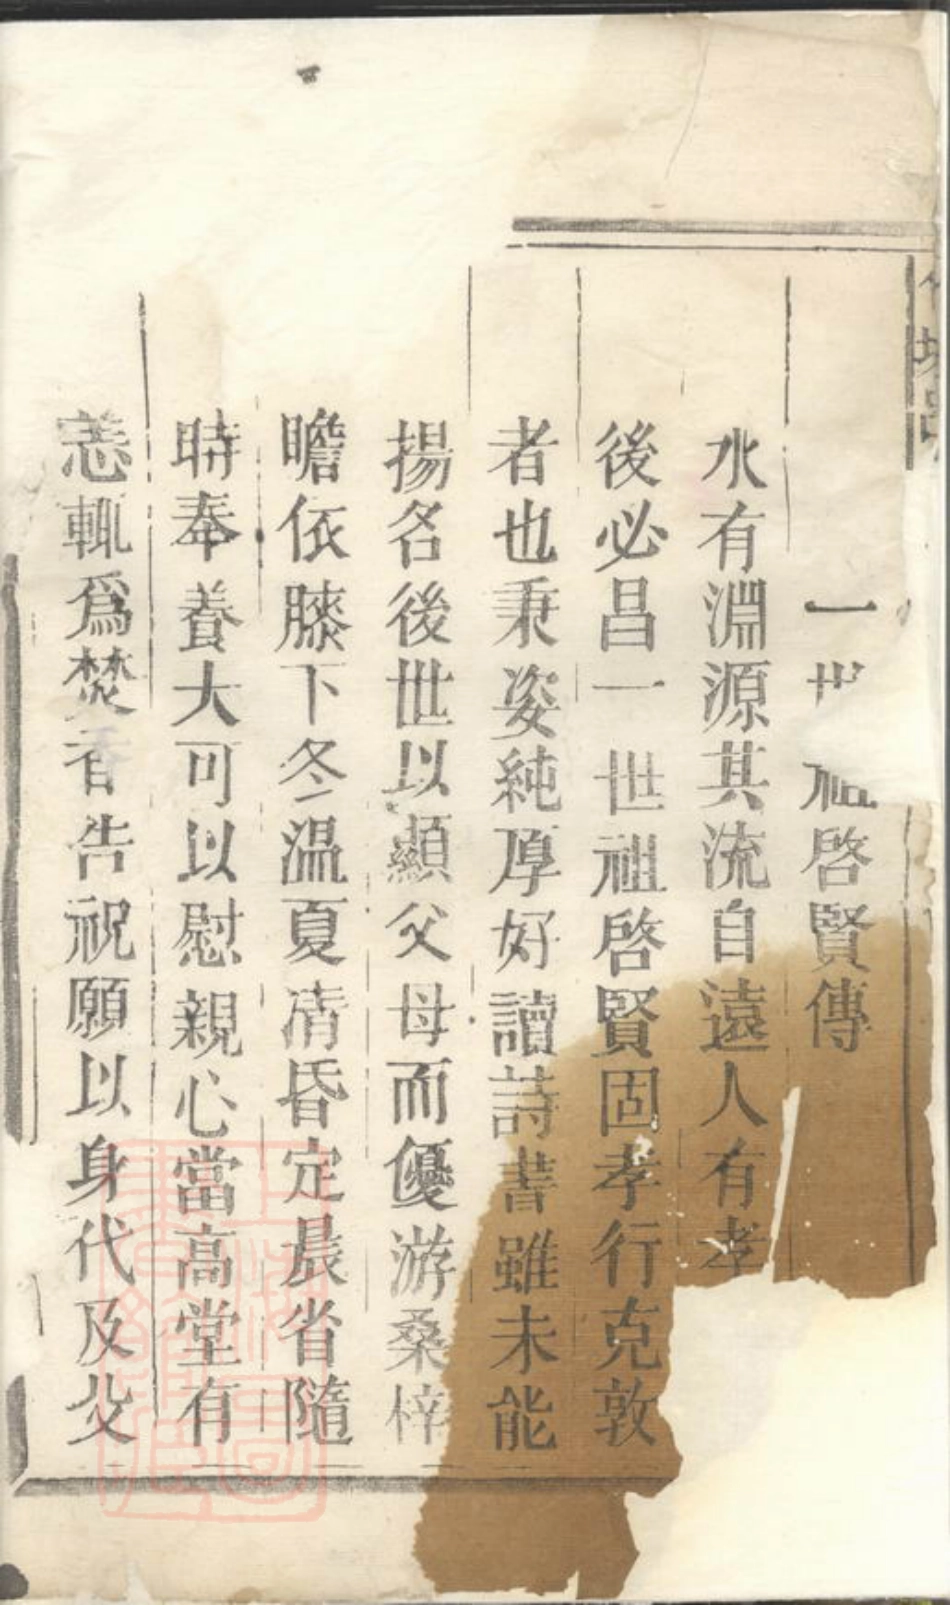 一世祖啓賢傳
水有淵源其流自遠人有孝
後必昌一世祖啓賢固孝行克敦
者也秉姿純厚好讀詩書雖未能
揚名後世以顯父母而優游桑梓
瞻依膝下冬溫夏凊昏定晨省隨
時奉養大可以慰親心當高堂有
恙輒爲焚香告祝願以身代及父